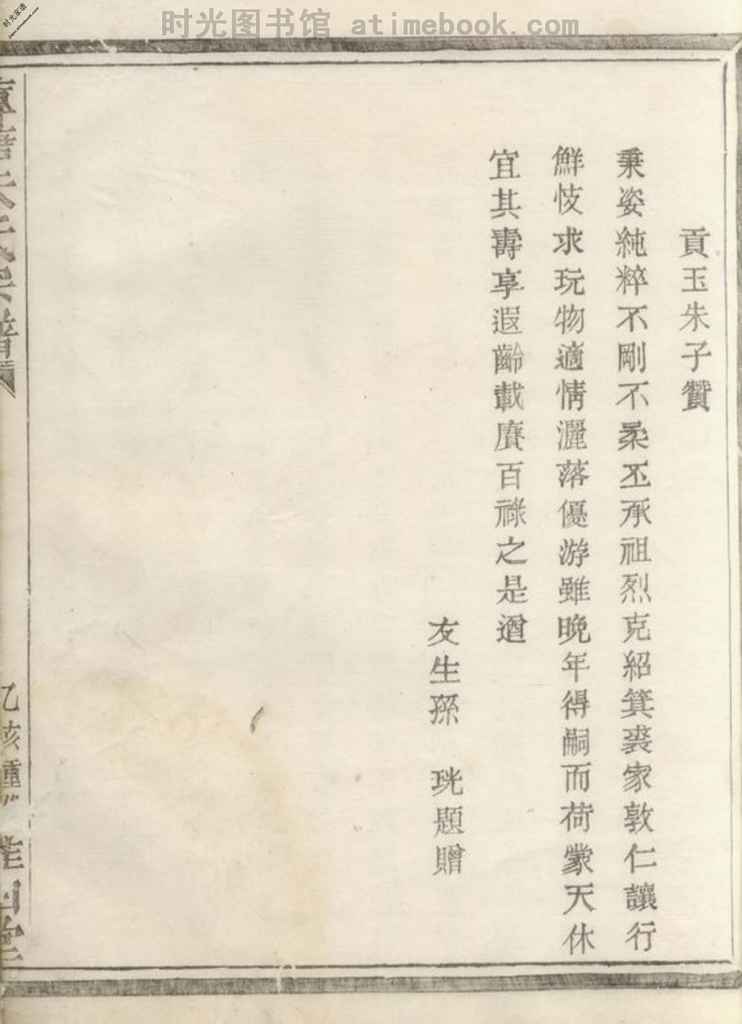 时光图书馆 atimebook.com
时光家谱
貢玉朱子贊
秉姿純粹不剛不柔丕承祖烈克紹箕裘家敦仁讓行
鮮忮求玩物適情灑落優游雖晚年得嗣而荷蒙天休
宜其壽享遐齡載賡百祿之是遒
友生孫 珖題贈
朱氏宗譜